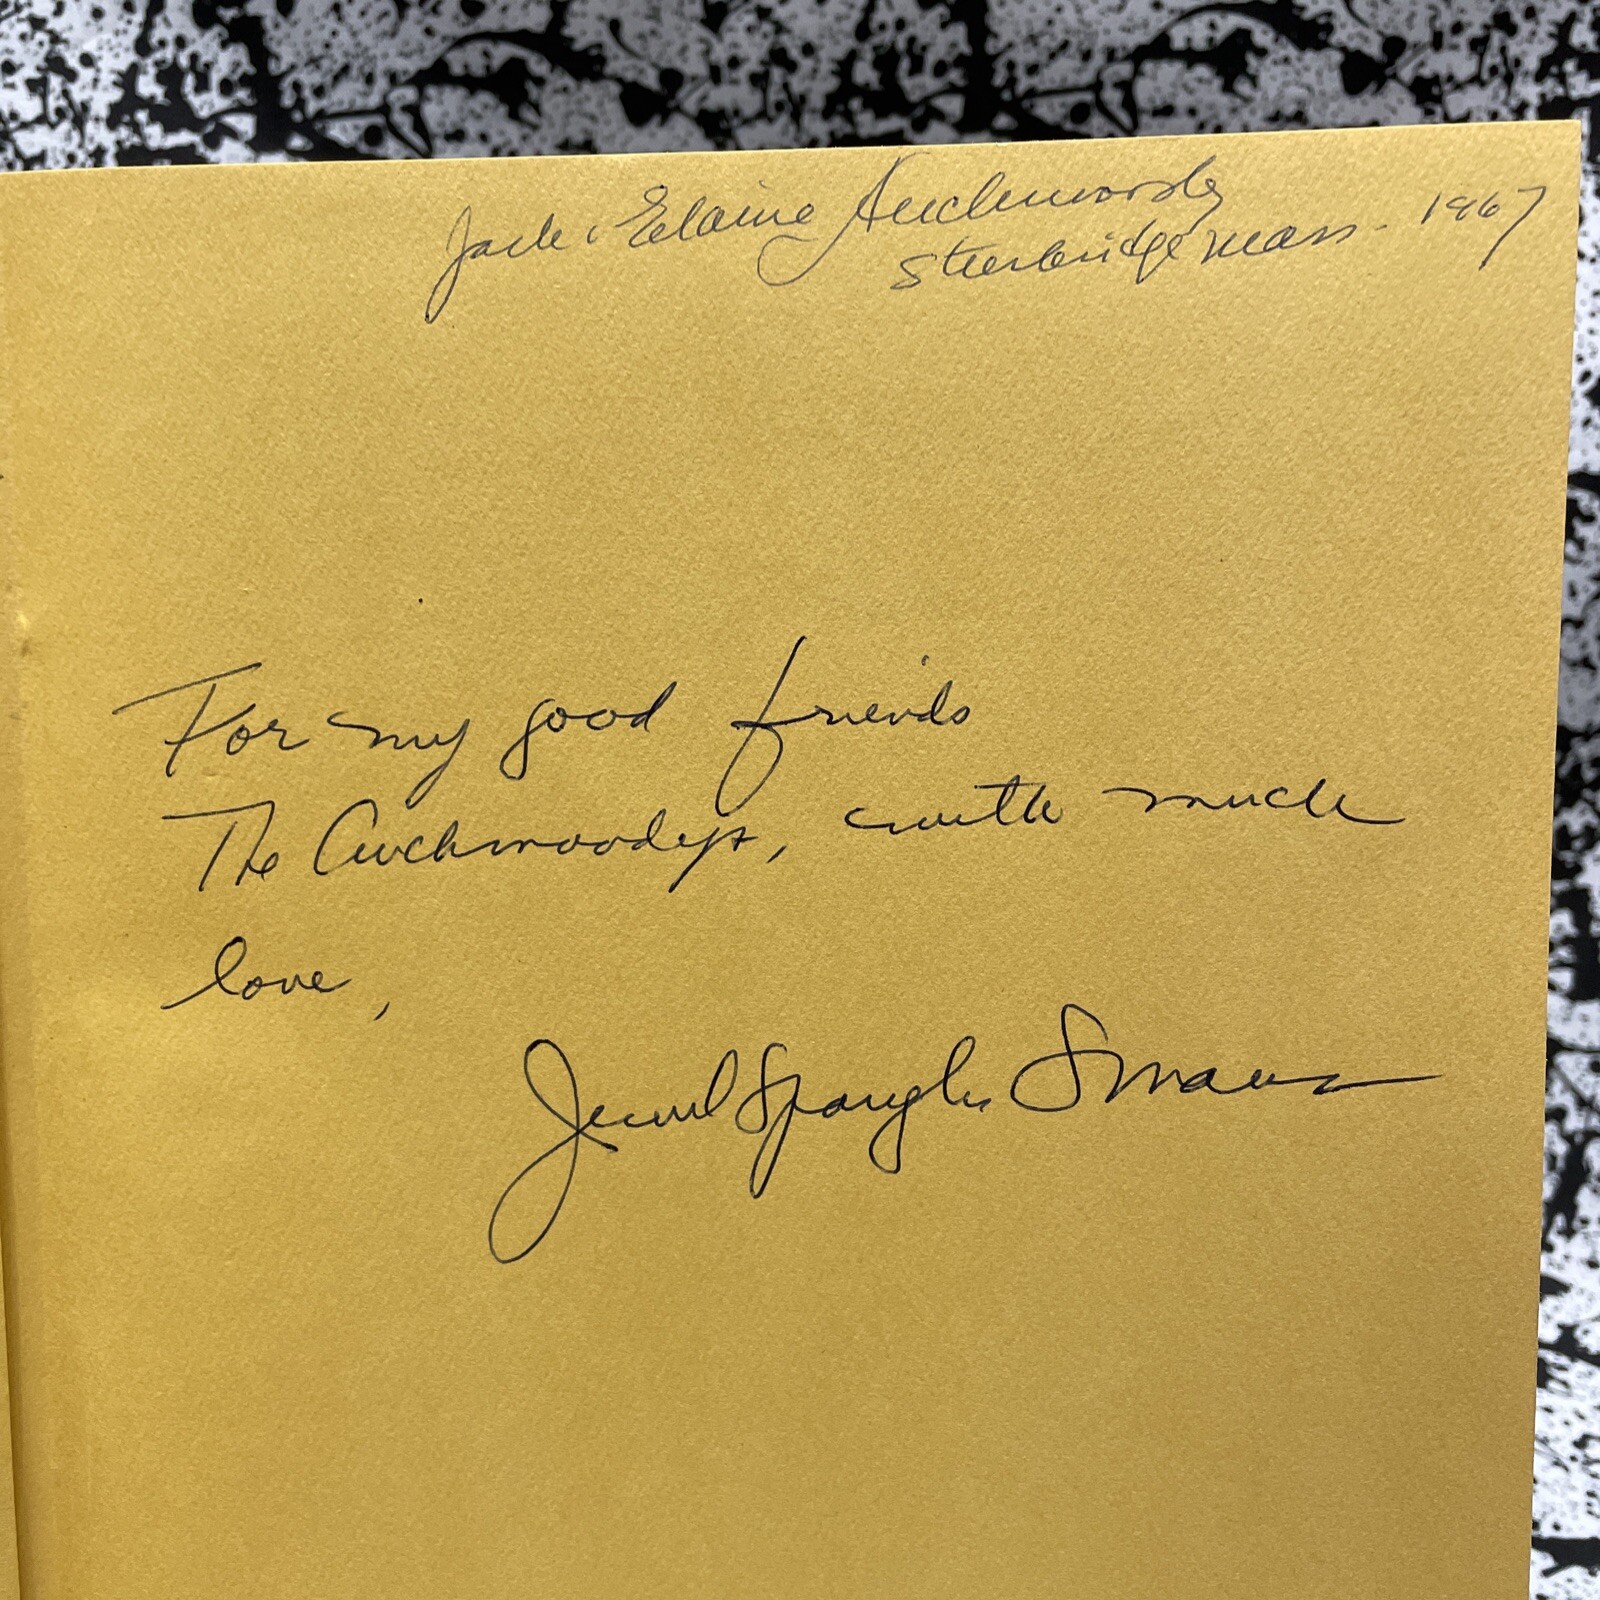 Jack & Elaine Auchmoody
Sturbridge Mass. 1967
For my good friends
The Auchmoodys, with much
love,
Jewel Spangler Smaus